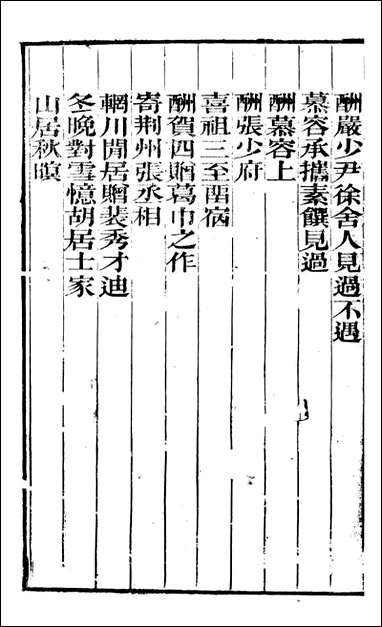 酬嚴少尹徐舍人見過不遇
慕容承攜素饌見過
酬慕容上
酬張少府
喜祖三至留宿
酬賀四贈葛巾之作
寄荆州張丞相
輞川閒居贈裴秀才迪
冬晚對雪憶胡居士家
山居秋暝